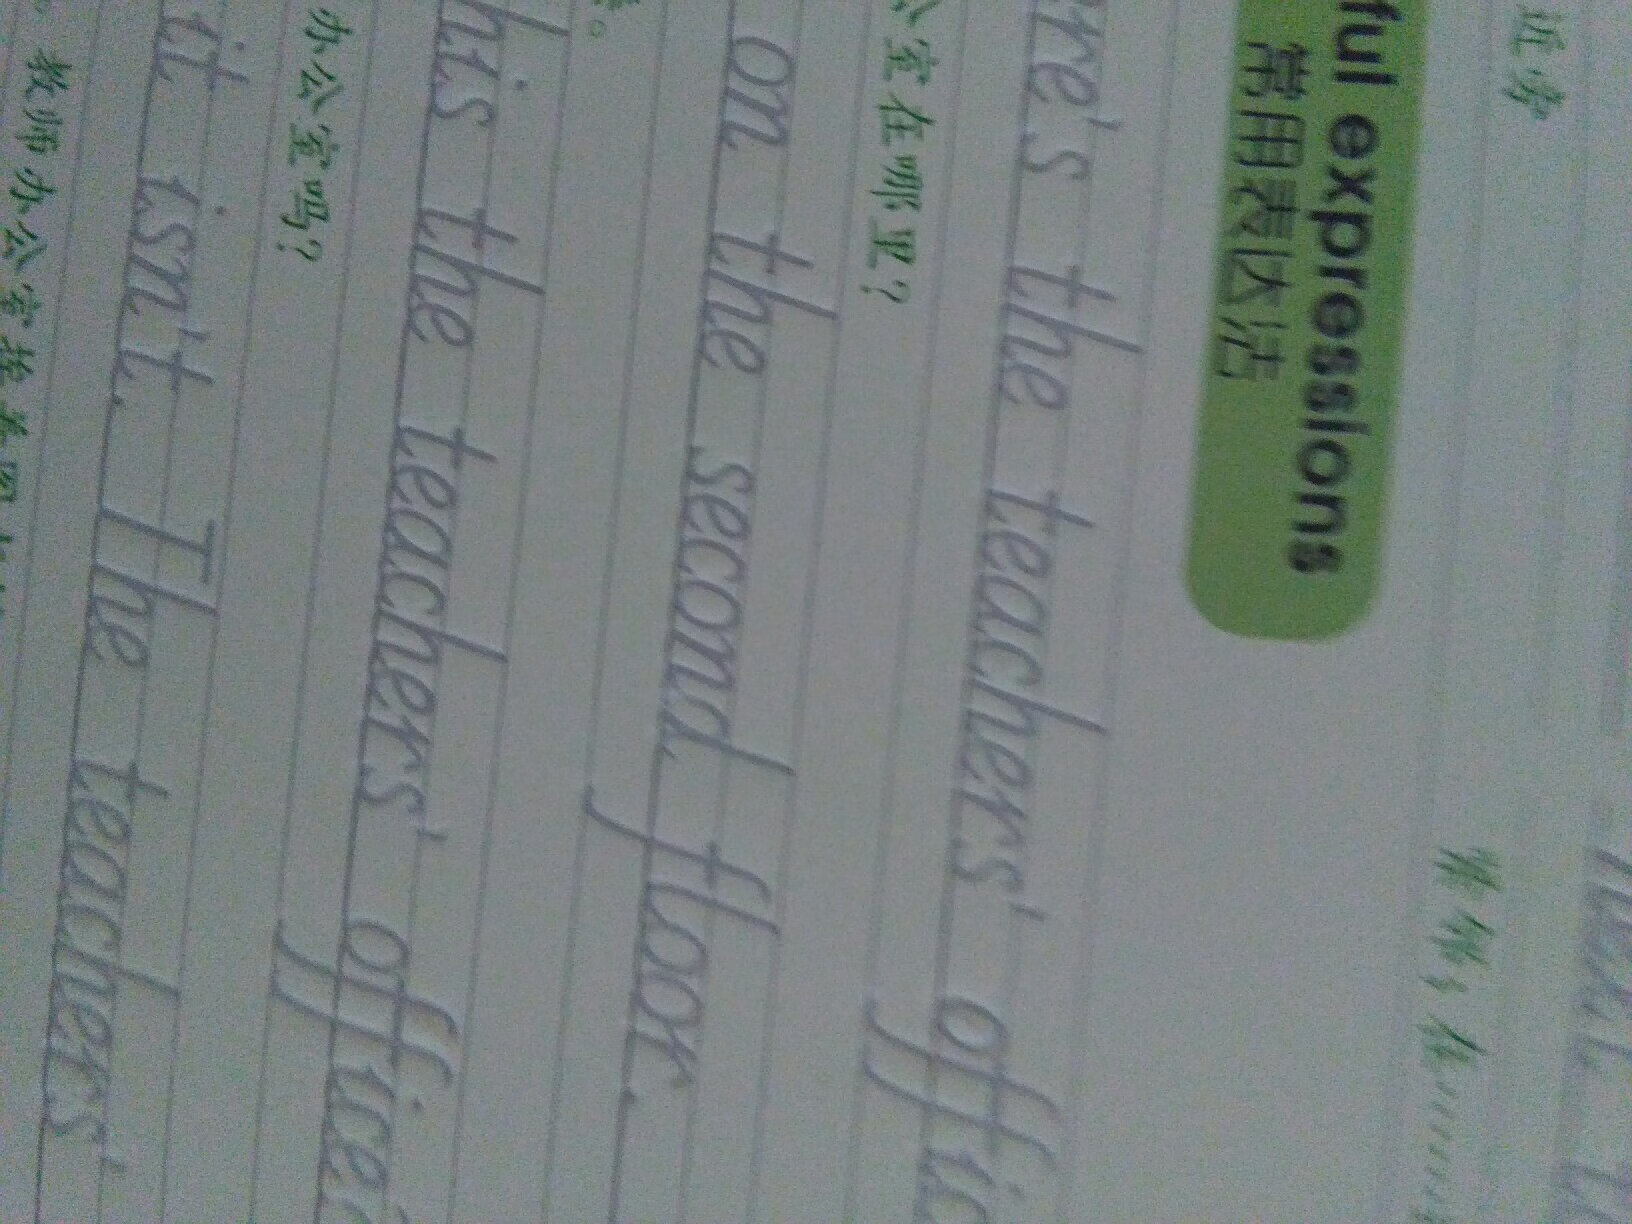 近旁
紧挨着；在……
ful expressions
常用表达法
re's the teachers' offic
公室在哪里？
on the second floor.
his the teachers' office
办公室吗？
it isn't. The teachers'
教师办公室挨着图